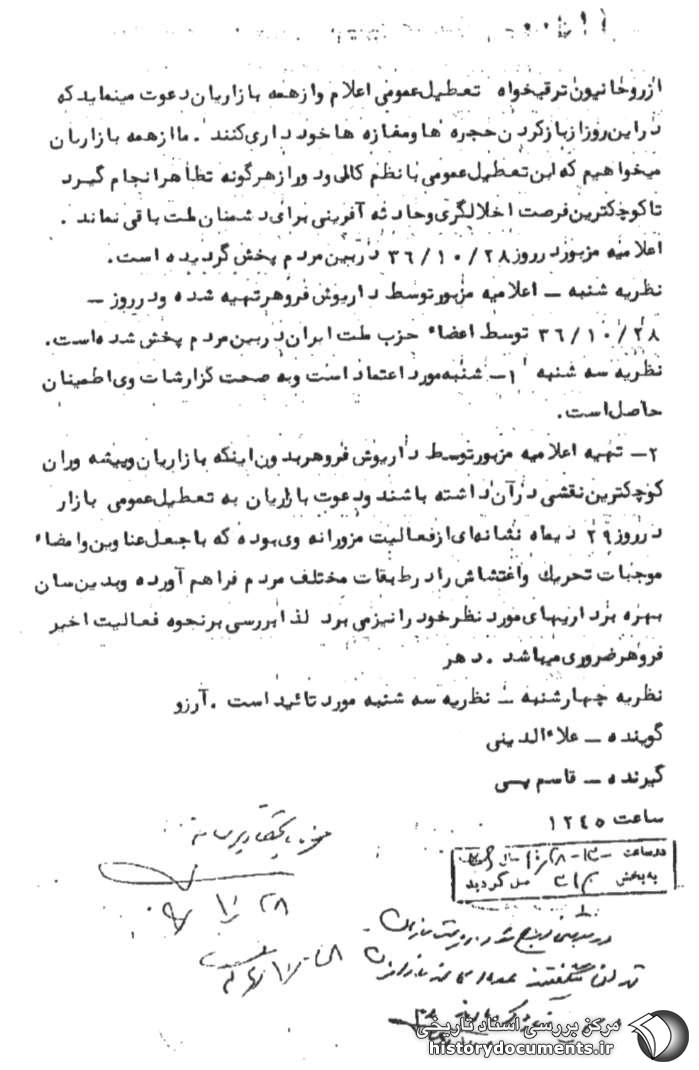 از روحانیون ترقیخواه تعطیل عمومی اعلام و از همه بازاریان دعوت مینماید که
در این روز از باز کردن حجره ها و مغازه ها خودداری کنند . ما از همه بازاریان
میخواهیم که این تعطیل عمومی با نظم کامل و دور از هرگونه تظاهر انجام گیرد
تا کوچکترین فرصت اخلالگری و حادثه آفرینی برای دشمنان ملت باقی نماند .
اعلامیه مزبور در روز ۳۶/۱۰/۲۸ در بین مردم پخش گردیده است .
نظریه شنبه ــ اعلامیه مزبور توسط داریوش فروهر تهیه شده و در روز ــ
۳۶/۱۰/۲۸ توسط اعضاء حزب ملت ایران در بین مردم پخش شده است .
نظریه سه شنبه ۱ــ شنبه مورد اعتماد است و به صحت گزارشات وی اطمینان
حاصل است .
۲ــ تهیه اعلامیه مزبور توسط داریوش فروهر بدون اینکه بازاریان و پیشه وران
کوچکترین نقشی در آن داشته باشند و دعوت بازاریان به تعطیل عمومی بازار
در روز ۲۹ دیماه نشانه ای از فعالیت مزورانه وی بوده که با جعل عناوین و امضاء
موجبات تحریک و اغتشاش را در طبقات مختلف مردم فراهم آورده و بدین سان
بهره برداریهای مورد نظر خود را نیز می برد لذا بررسی بر نحوه فعالیت اخیر
فروهر ضروری میباشد . دهر
نظریه چهارشنبه ــ نظریه سه شنبه مورد تائید است . آرزو
گوینده ــ علاءالدینی
گیرنده ــ قاسم بهی
ساعت ۱۲۴۵
در ساعت
به بخش ۳۱۲ گردید
۲۸
مرکز بررسی اسناد تاریخی
historydocuments.ir